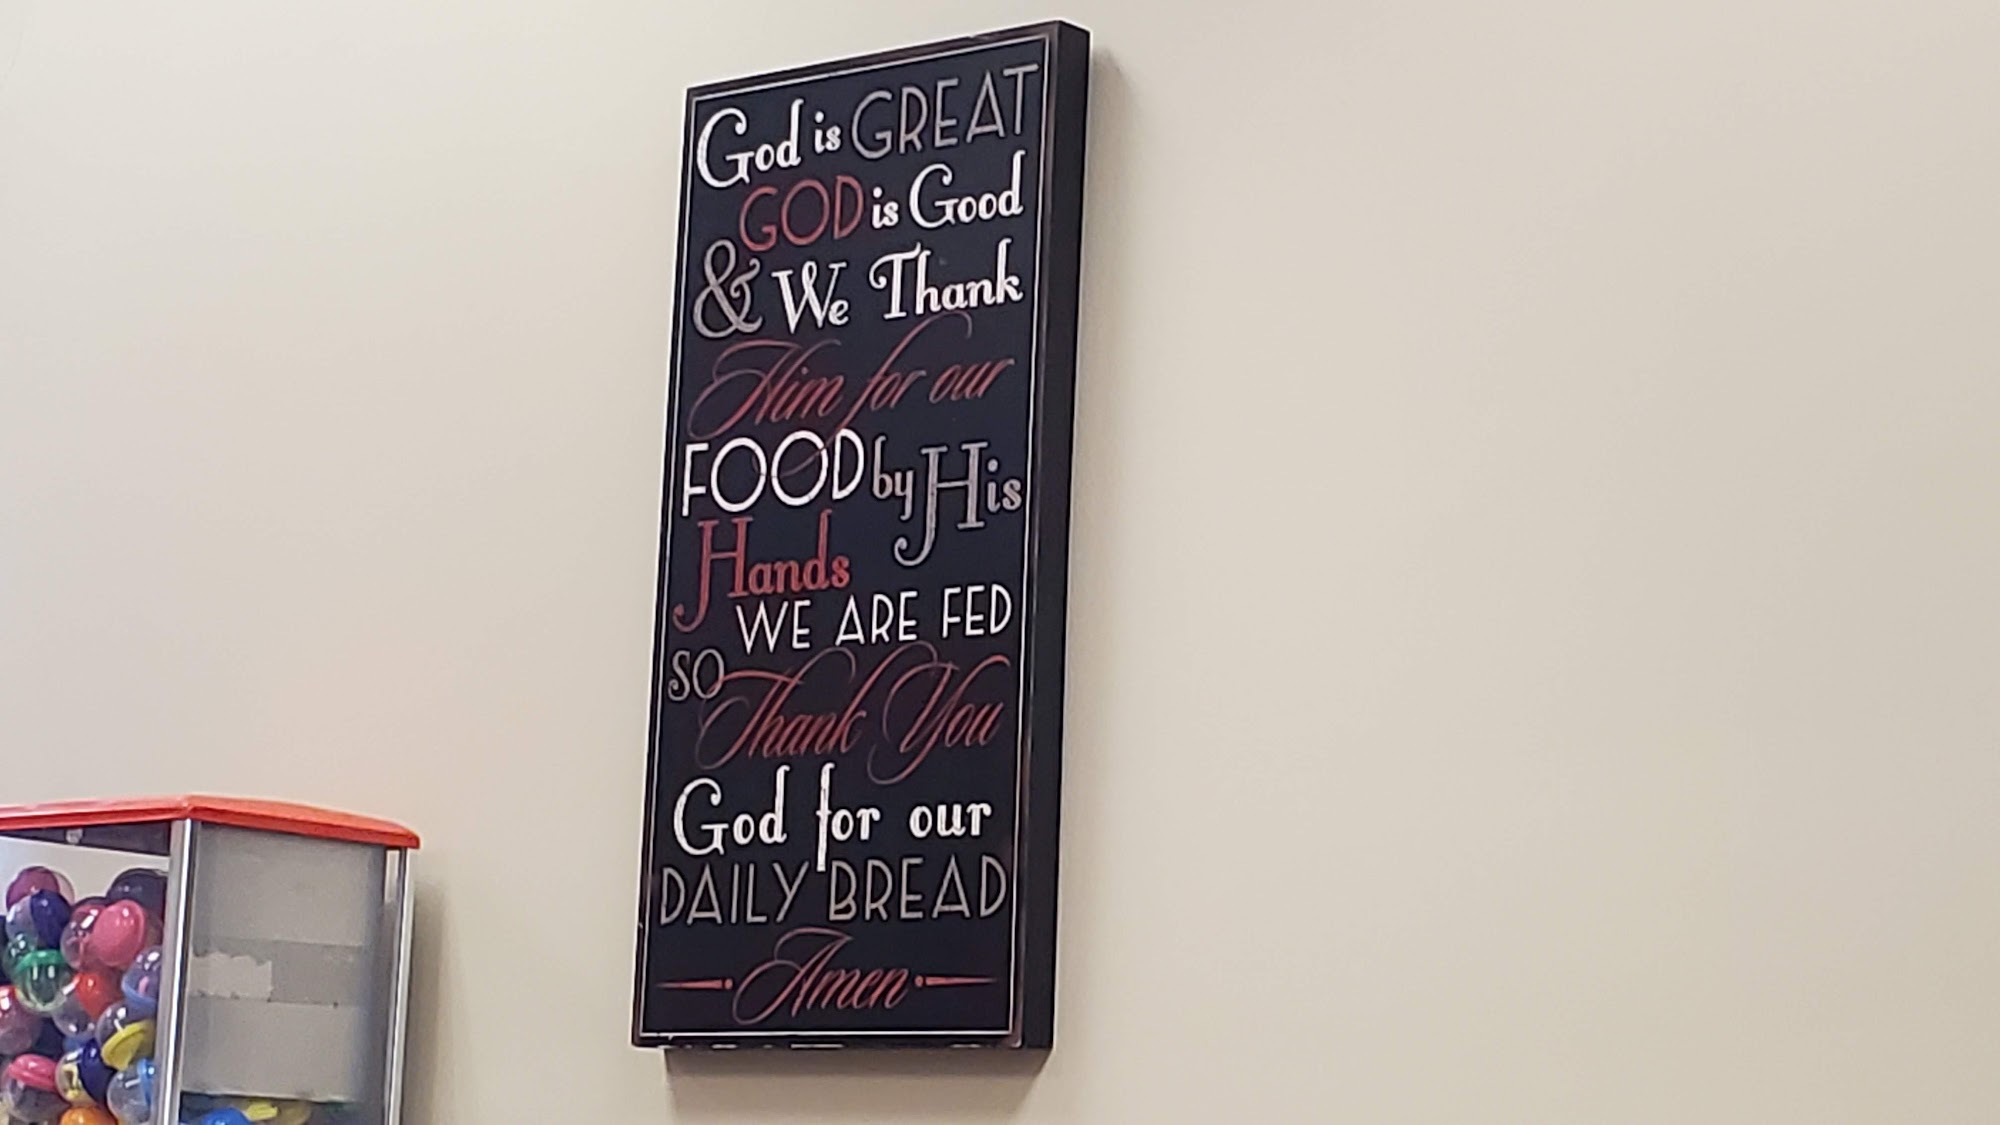 God is GREAT
GOD is Good
& We Thank
Him for our
FOOD by His
Hands
WE ARE FED
SO Thank You
God for our
DAILY BREAD
Amen